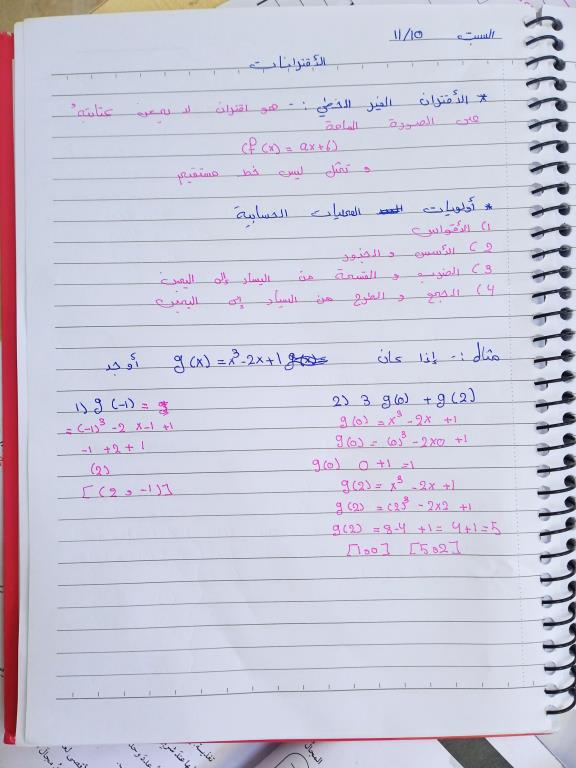 السبت 11/10
الأقترانات
* الأقتران الغير الخطي :- هو اقتران لا يمكن كتابته
على الصورة العامة
(f(x) = ax+b)
و تمثل ليس خط مستقيم
* أولويات العمليات الحسابية
1) الأقواس
2) الأسس و الجذور
3) الضرب و القسمة من اليسار إلى اليمين
4) الجمع و الطرح من اليسار إلى اليمين
مثال :- إذا كان g(x) = x³-2x+1 أوجد
1) g(-1) =
= (-1)³ -2 x -1 +1
-1 +2+1
(2)
[(2 , -1)]
2) 3 g(0) + g(2)
g(0) = x³ -2x +1
g(0) = (0)³ -2x0 +1
g(0) 0 +1 =1
g(2) = x³ -2x +1
g(2) = (2)³ -2x2 +1
g(2) = 8-4 +1 = 4+1=5
[1,0] [5,2]